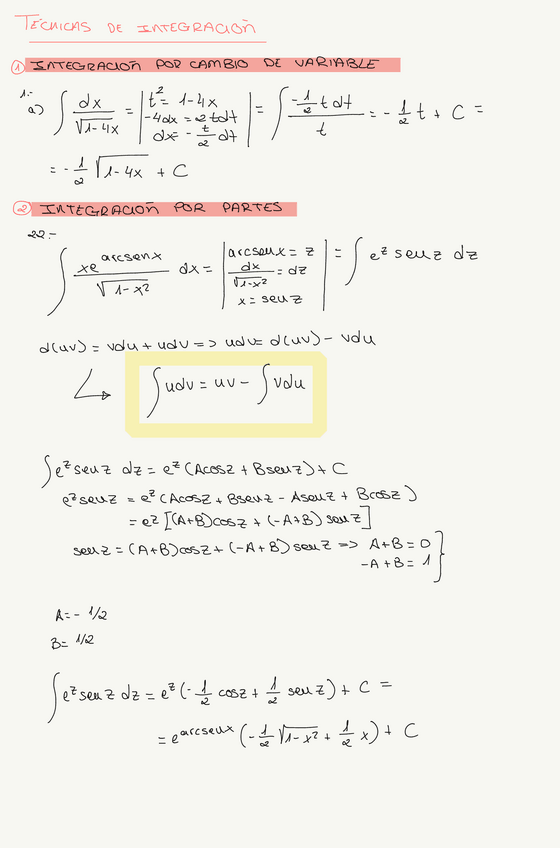 TÉCNICAS DE INTEGRACIÓN
① INTEGRACIÓN POR CAMBIO DE VARIABLE
1.-
a) ∫ dx/√(1-4x) = | t² = 1-4x; -4dx = 2tdt; dx = -t/2 dt | = ∫ (-1/2 t dt)/t = -1/2 t + C =
= -1/2 √(1-4x) + C
② INTEGRACIÓN POR PARTES
22.-
∫ xe^(arcsenx)/√(1-x²) dx = | arcsenx = z; dx/√(1-x²) = dz; x = senz | = ∫ e^z senz dz
d(uv) = vdu + udv => udv = d(uv) - vdu
∫ udv = uv - ∫ vdu
∫ e^z senz dz = e^z (Acosz + Bsenz) + C
e^z senz = e^z (Acosz + Bsenz - Asenz + Bcosz)
= e^z [(A+B)cosz + (-A+B) senz]
senz = (A+B)cosz + (-A+B) senz => A+B = 0
-A+B = 1 }
A = - 1/2
B = 1/2
∫ e^z senz dz = e^z (-1/2 cosz + 1/2 senz) + C =
= e^(arcsenx) (-1/2 √(1-x²) + 1/2 x) + C